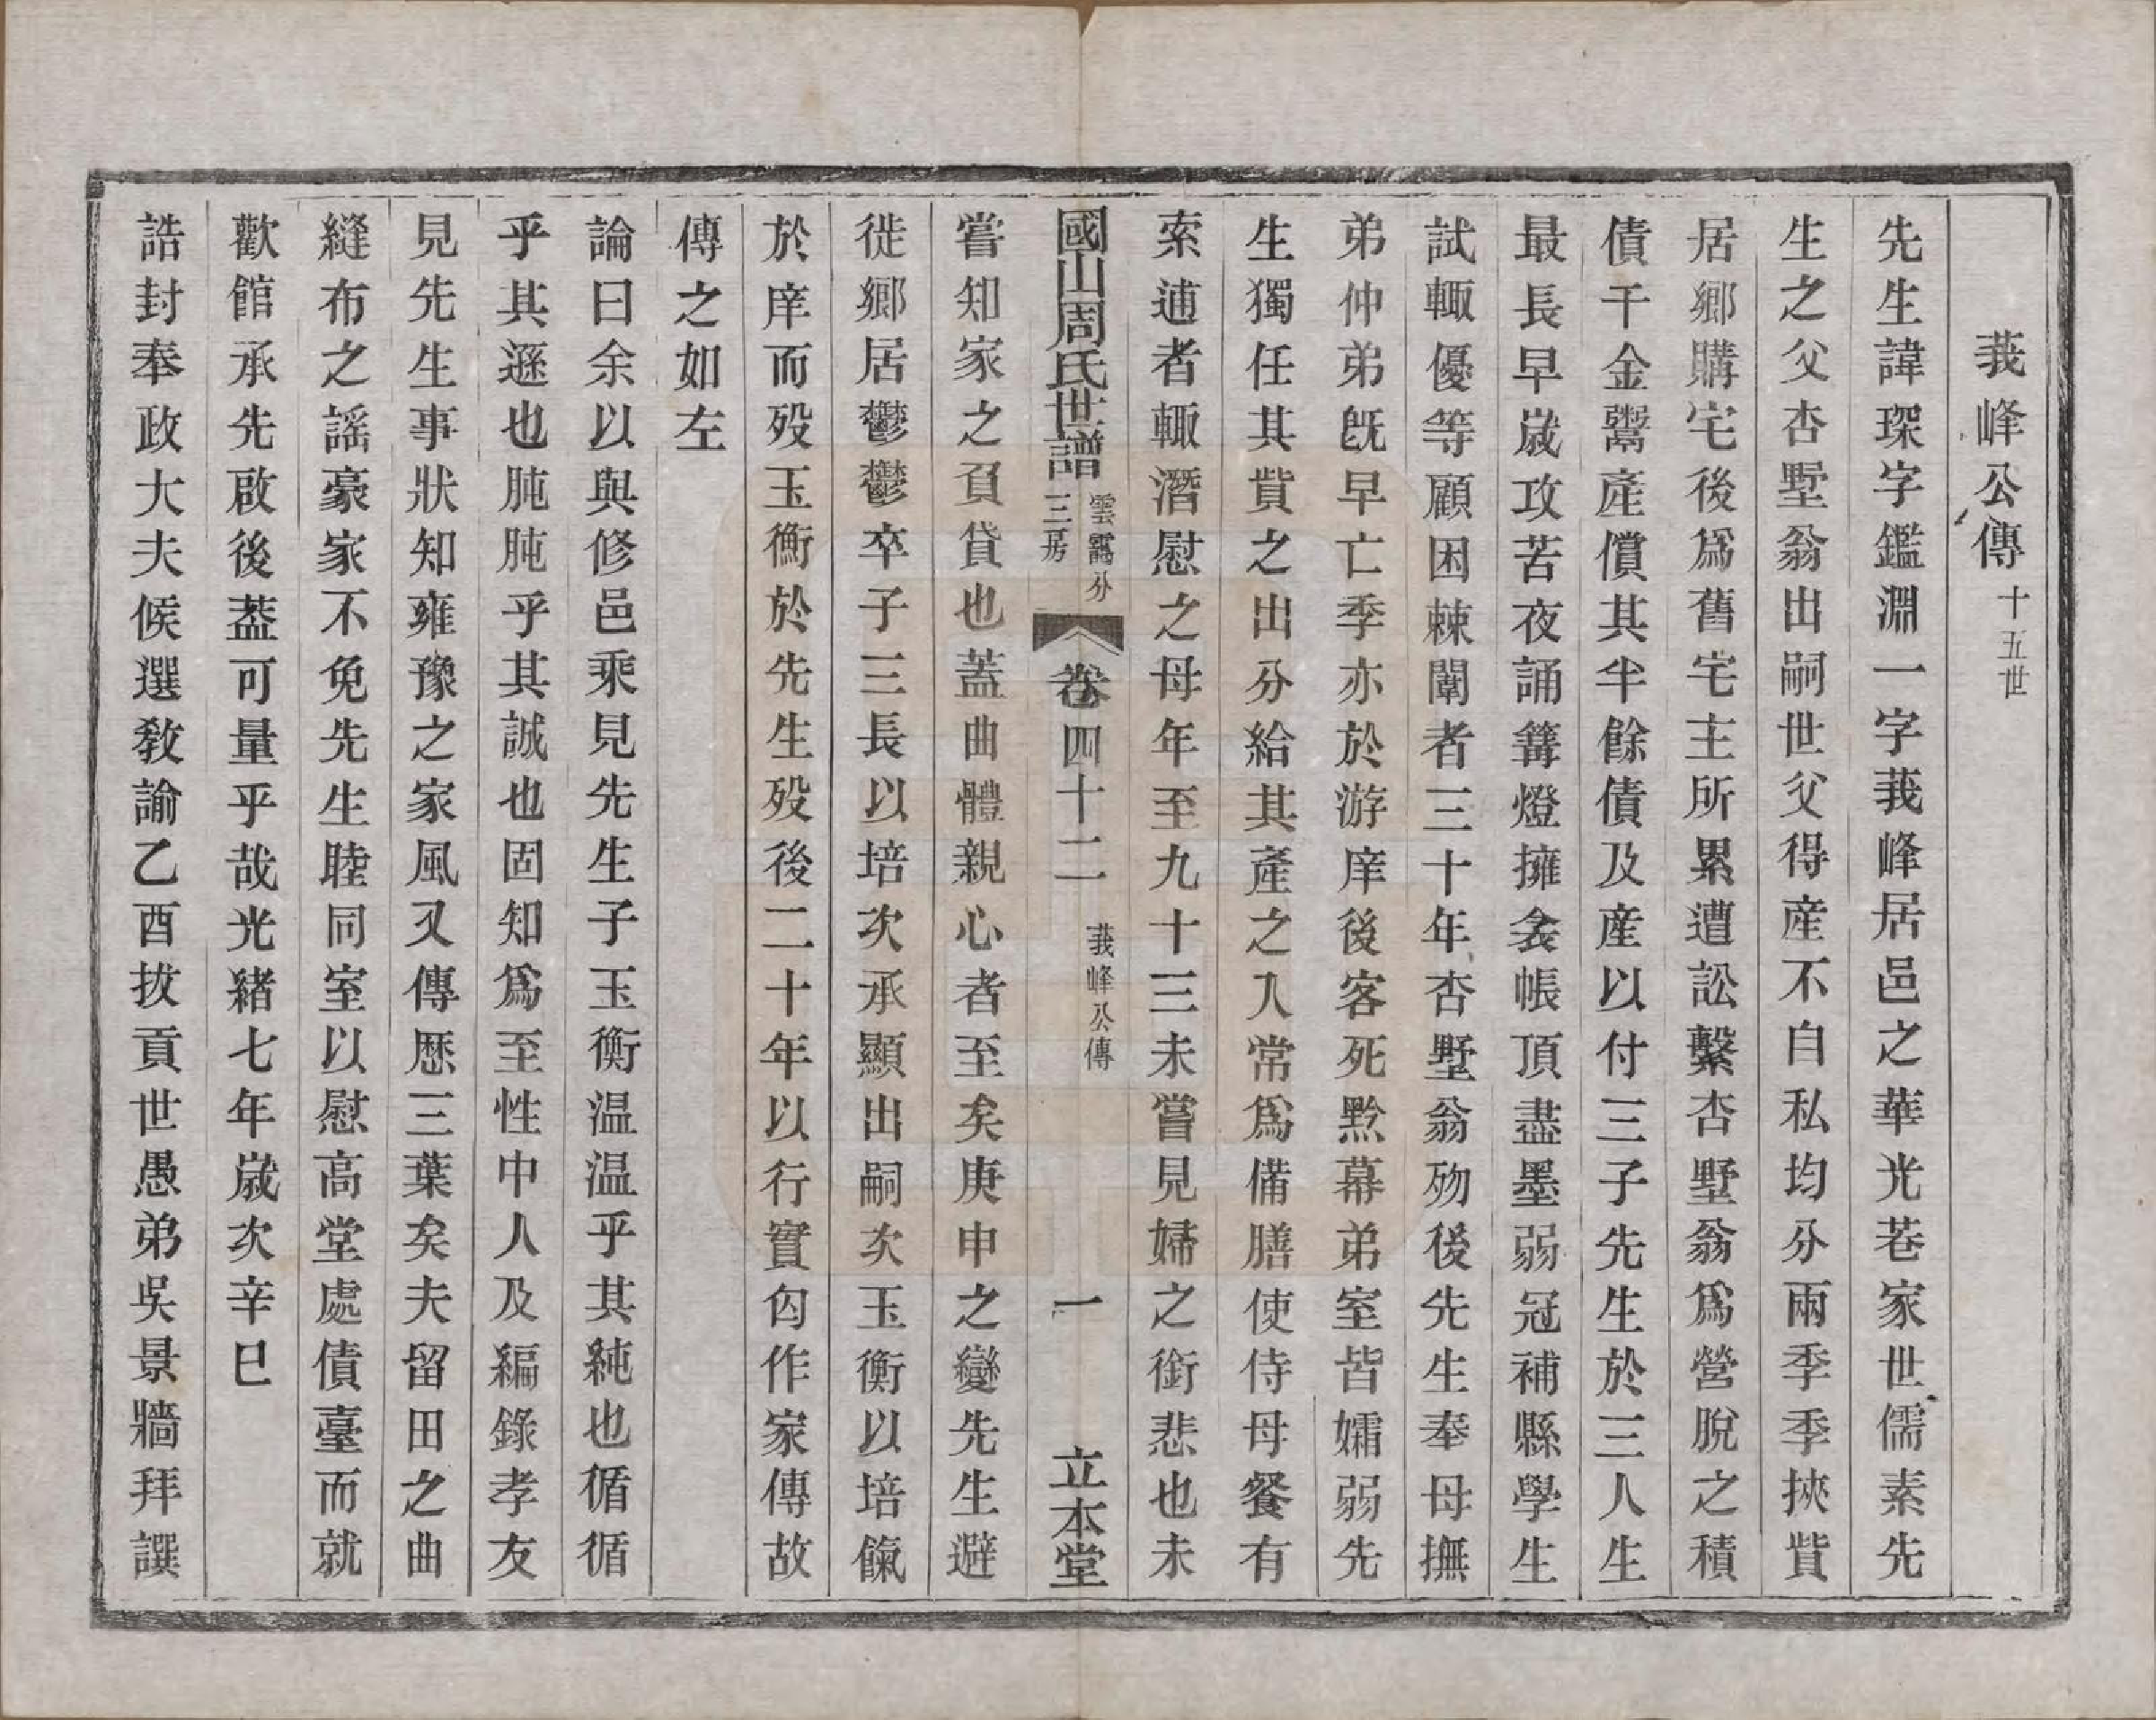 莪峰公傳十五世
先生諱琛字鑑淵一字莪峰居邑之華光巷家世儒素先
生之父杏墅翁出嗣世父得産不自私均分兩季季挾貲
居鄉購宅後爲舊宅主所累遭訟繫杏墅翁爲營脫之積
債千金鬻產償其半餘債及産以付三子先生於三人生
最長早歲攻苦夜誦篝燈擁衾帳頂盡墨弱冠補縣學生
試輒優等顧困棘闈者三十年杏墅翁歾後先生奉母撫
弟仲弟旣早亡季亦於游庠後客死黔幕弟室皆孀弱先
生獨任其貲之出分給其產之入常爲備膳使侍母餐有
索逋者輒潛慰之母年至九十三未嘗見婦之銜悲也未
國山周氏世譜 雲靄分三房 卷四十二 莪峰公傳 一 立本堂
嘗知家之負貸也蓋曲體親心者至矣庚申之變先生避
徙鄉居鬱鬱卒子三長以培次承顯出嗣次玉衡以培餼
於庠而歿玉衡於先生歿後二十年以行實匄作家傳故
傳之如左
論曰余以與修邑乘見先生子玉衡温温乎其純也循循
乎其遜也肫肫乎其誠也固知爲至性中人及編錄孝友
見先生事狀知雍豫之家風又傳厯三葉矣夫留田之曲
縫布之謠豪家不免先生睦同室以慰高堂處債臺而就
歡館承先啟後葢可量乎哉光緒七年歲次辛巳
誥封奉政大夫候選教諭乙酉拔貢世愚弟吳景牆拜譔